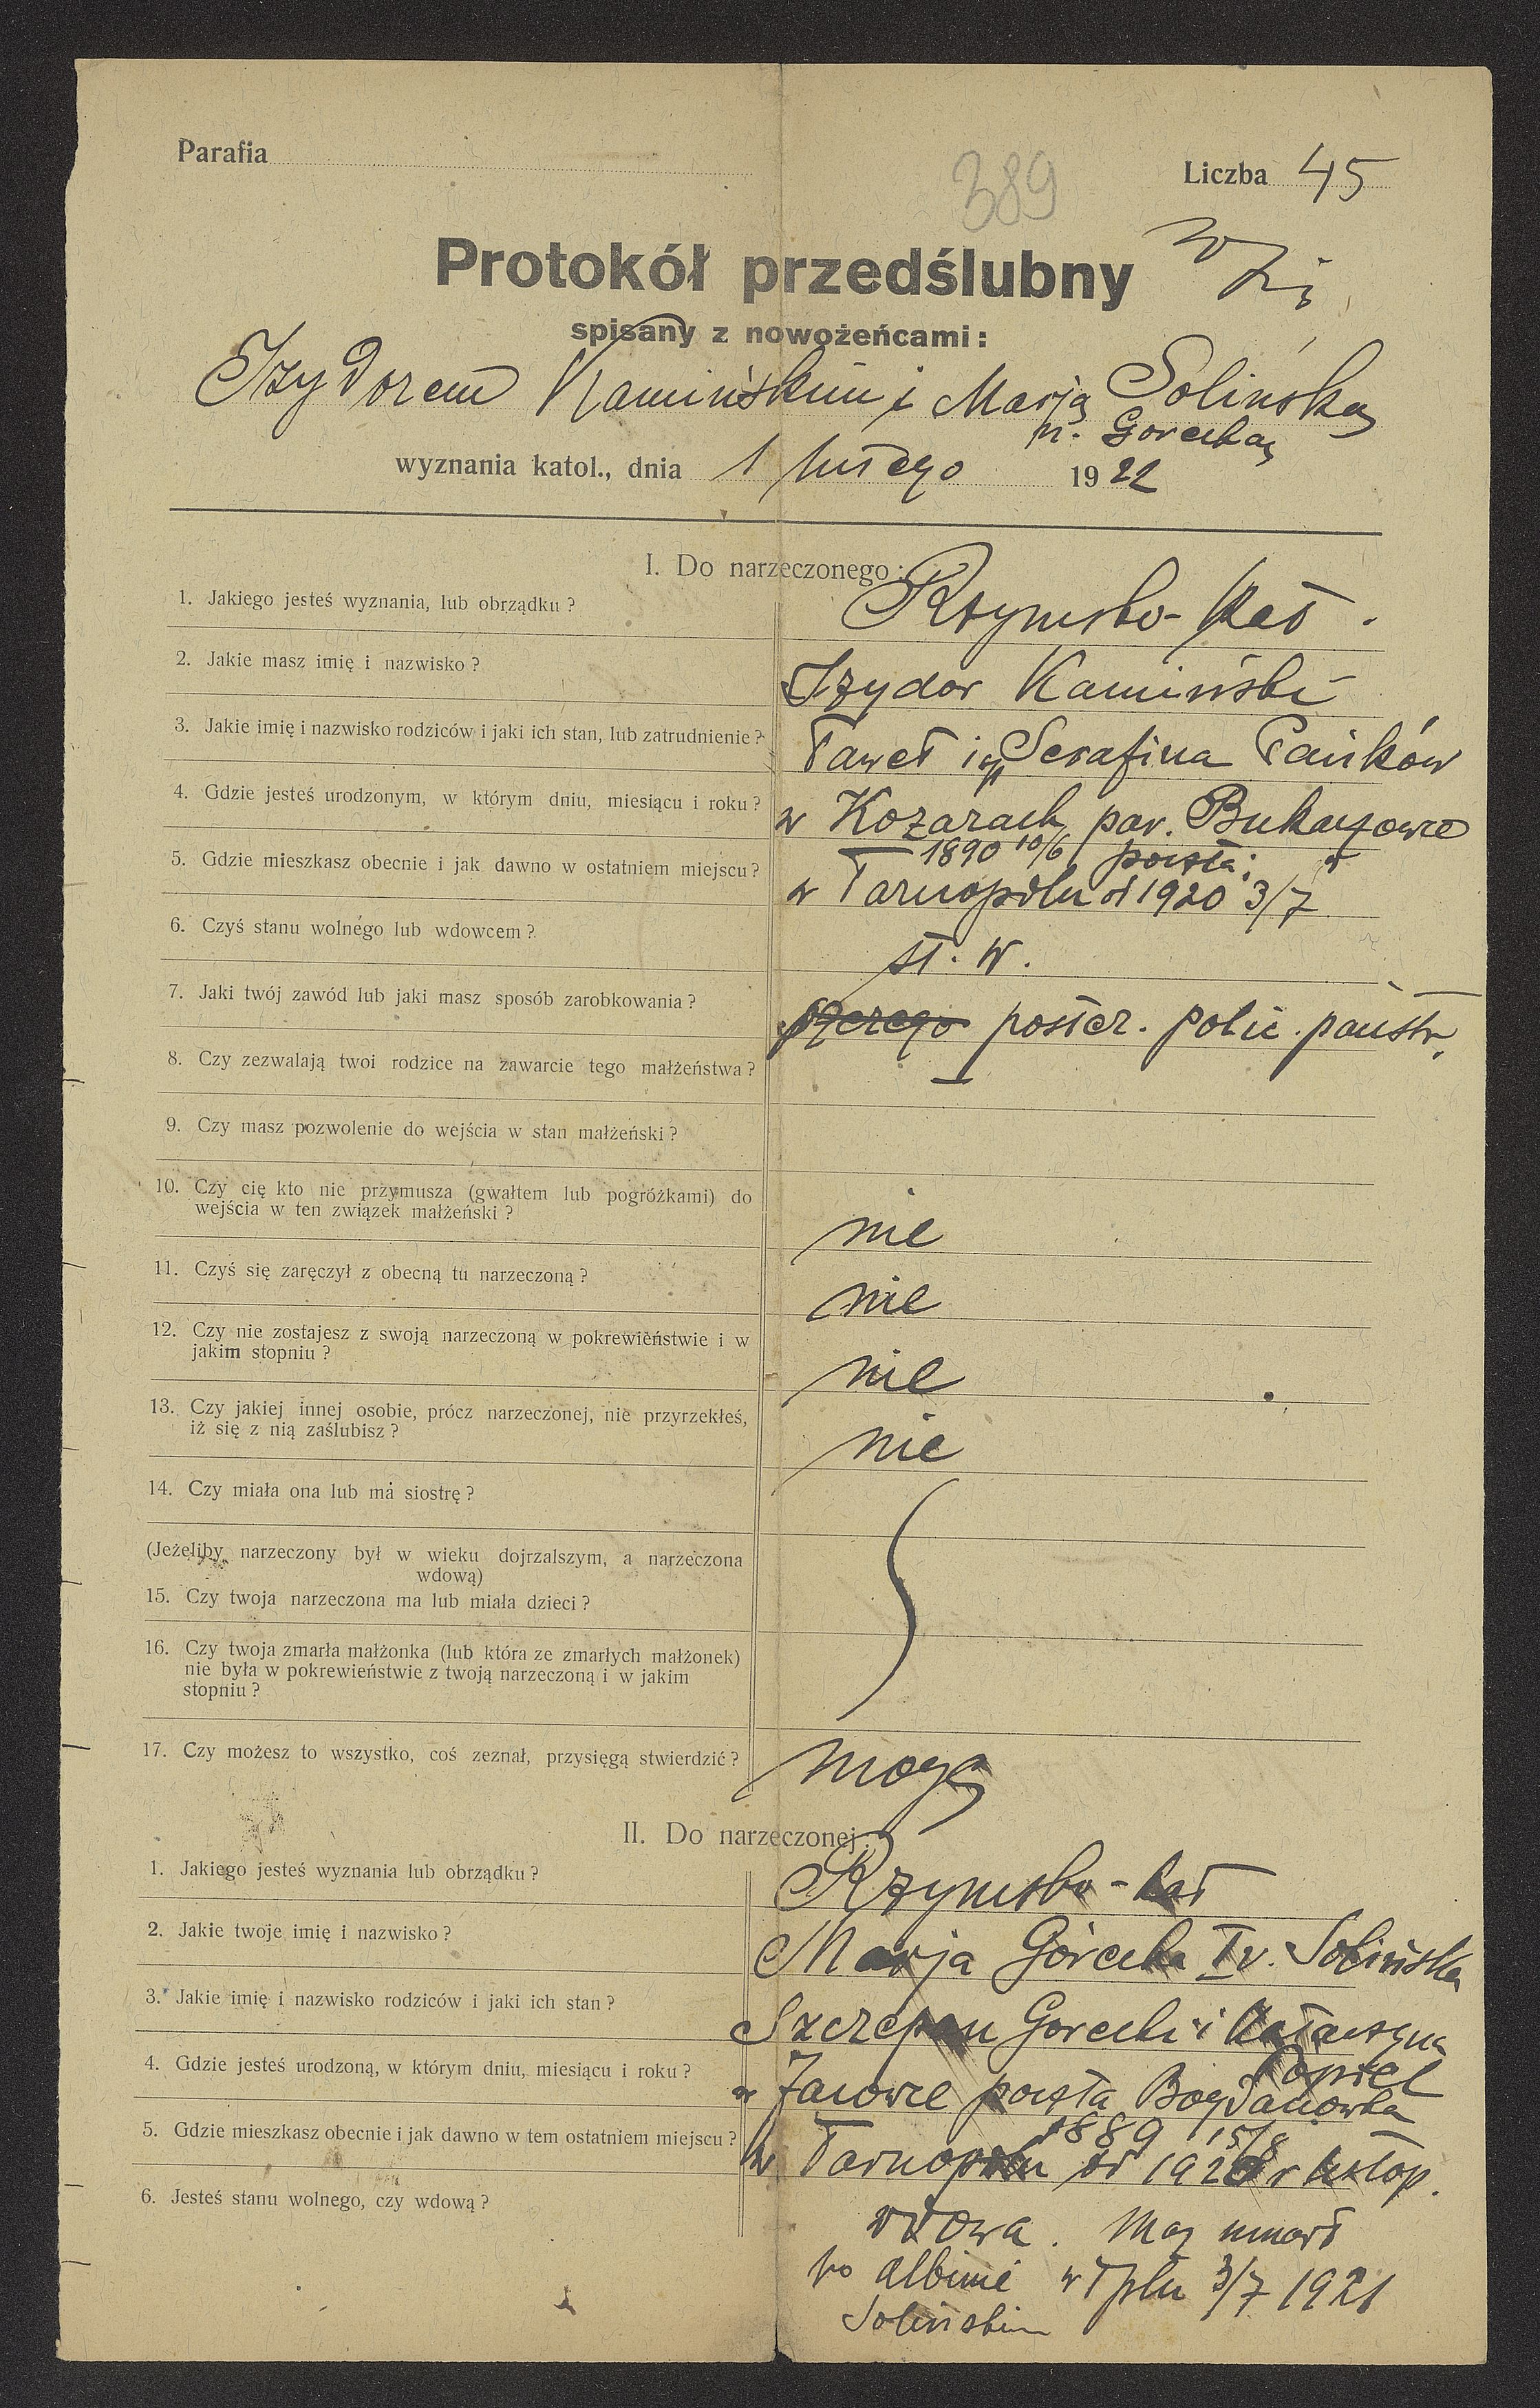 Parafia
389
Liczba 45
Protokół przedślubny
spisany z nowożeńcami:
Izydorem Kamińskim i Marją Solińską
n. Gorecką
wyznania katol., dnia 1 lutego 1922
I. Do narzeczonego:
1. Jakiego jesteś wyznania, lub obrządku? Rzymsko-kat.
2. Jakie masz imię i nazwisko? Izydor Kamiński
3. Jakie imię i nazwisko rodziców i jaki ich stan, lub zatrudnienie? Paweł i Serafina Pańków
4. Gdzie jesteś urodzonym, w którym dniu, miesiącu i roku? w Kozarach, par. Bukaczowce
1890 10/6 poczta:
5. Gdzie mieszkasz obecnie i jak dawno w ostatniem miejscu? w Tarnopolu od 1920 3/7
6. Czyś stanu wolnego lub wdowcem? st. w.
7. Jaki twój zawód lub jaki masz sposób zarobkowania? poster. polic. państw.
8. Czy zezwalają twoi rodzice na zawarcie tego małżeństwa? —
9. Czy masz pozwolenie do wejścia w stan małżeński?
10. Czy cię kto nie przymusza (gwałtem lub pogróżkami) do
wejścia w ten związek małżeński? nie
11. Czyś się zaręczył z obecną tu narzeczoną? nie
12. Czy nie zostajesz z swoją narzeczoną w pokrewieństwie i w
jakim stopniu? nie
13. Czy jakiej innej osobie, prócz narzeczonej, nie przyrzekłeś,
iż się z nią zaślubisz? nie
14. Czy miała ona lub ma siostrę?
(Jeżeliby narzeczony był w wieku dojrzalszym, a narzeczona
wdową)
15. Czy twoja narzeczona ma lub miała dzieci?
16. Czy twoja zmarła małżonka (lub która ze zmarłych małżonek)
nie była w pokrewieństwie z twoją narzeczoną i w jakim
stopniu?
17. Czy możesz to wszystko, coś zeznał, przysięgą stwierdzić? mogę
II. Do narzeczonej:
1. Jakiego jesteś wyznania lub obrządku? Rzymsko-kat
2. Jakie twoje imię i nazwisko? Marja Górecka I v. Solińska
3. Jakie imię i nazwisko rodziców i jaki ich stan? Szczepan Gorecki i Katarzyna
Popiel
4. Gdzie jesteś urodzoną, w którym dniu, miesiącu i roku? w Janowce poczta Bogdanówka
1889 15/8
5. Gdzie mieszkasz obecnie i jak dawno w tem ostatniem miejscu? w Tarnopolu od 1920 r listop.
6. Jesteś stanu wolnego, czy wdową? wdowa. Mąż umarł
po Albinie w Tplu 3/7 1921
Solińskim